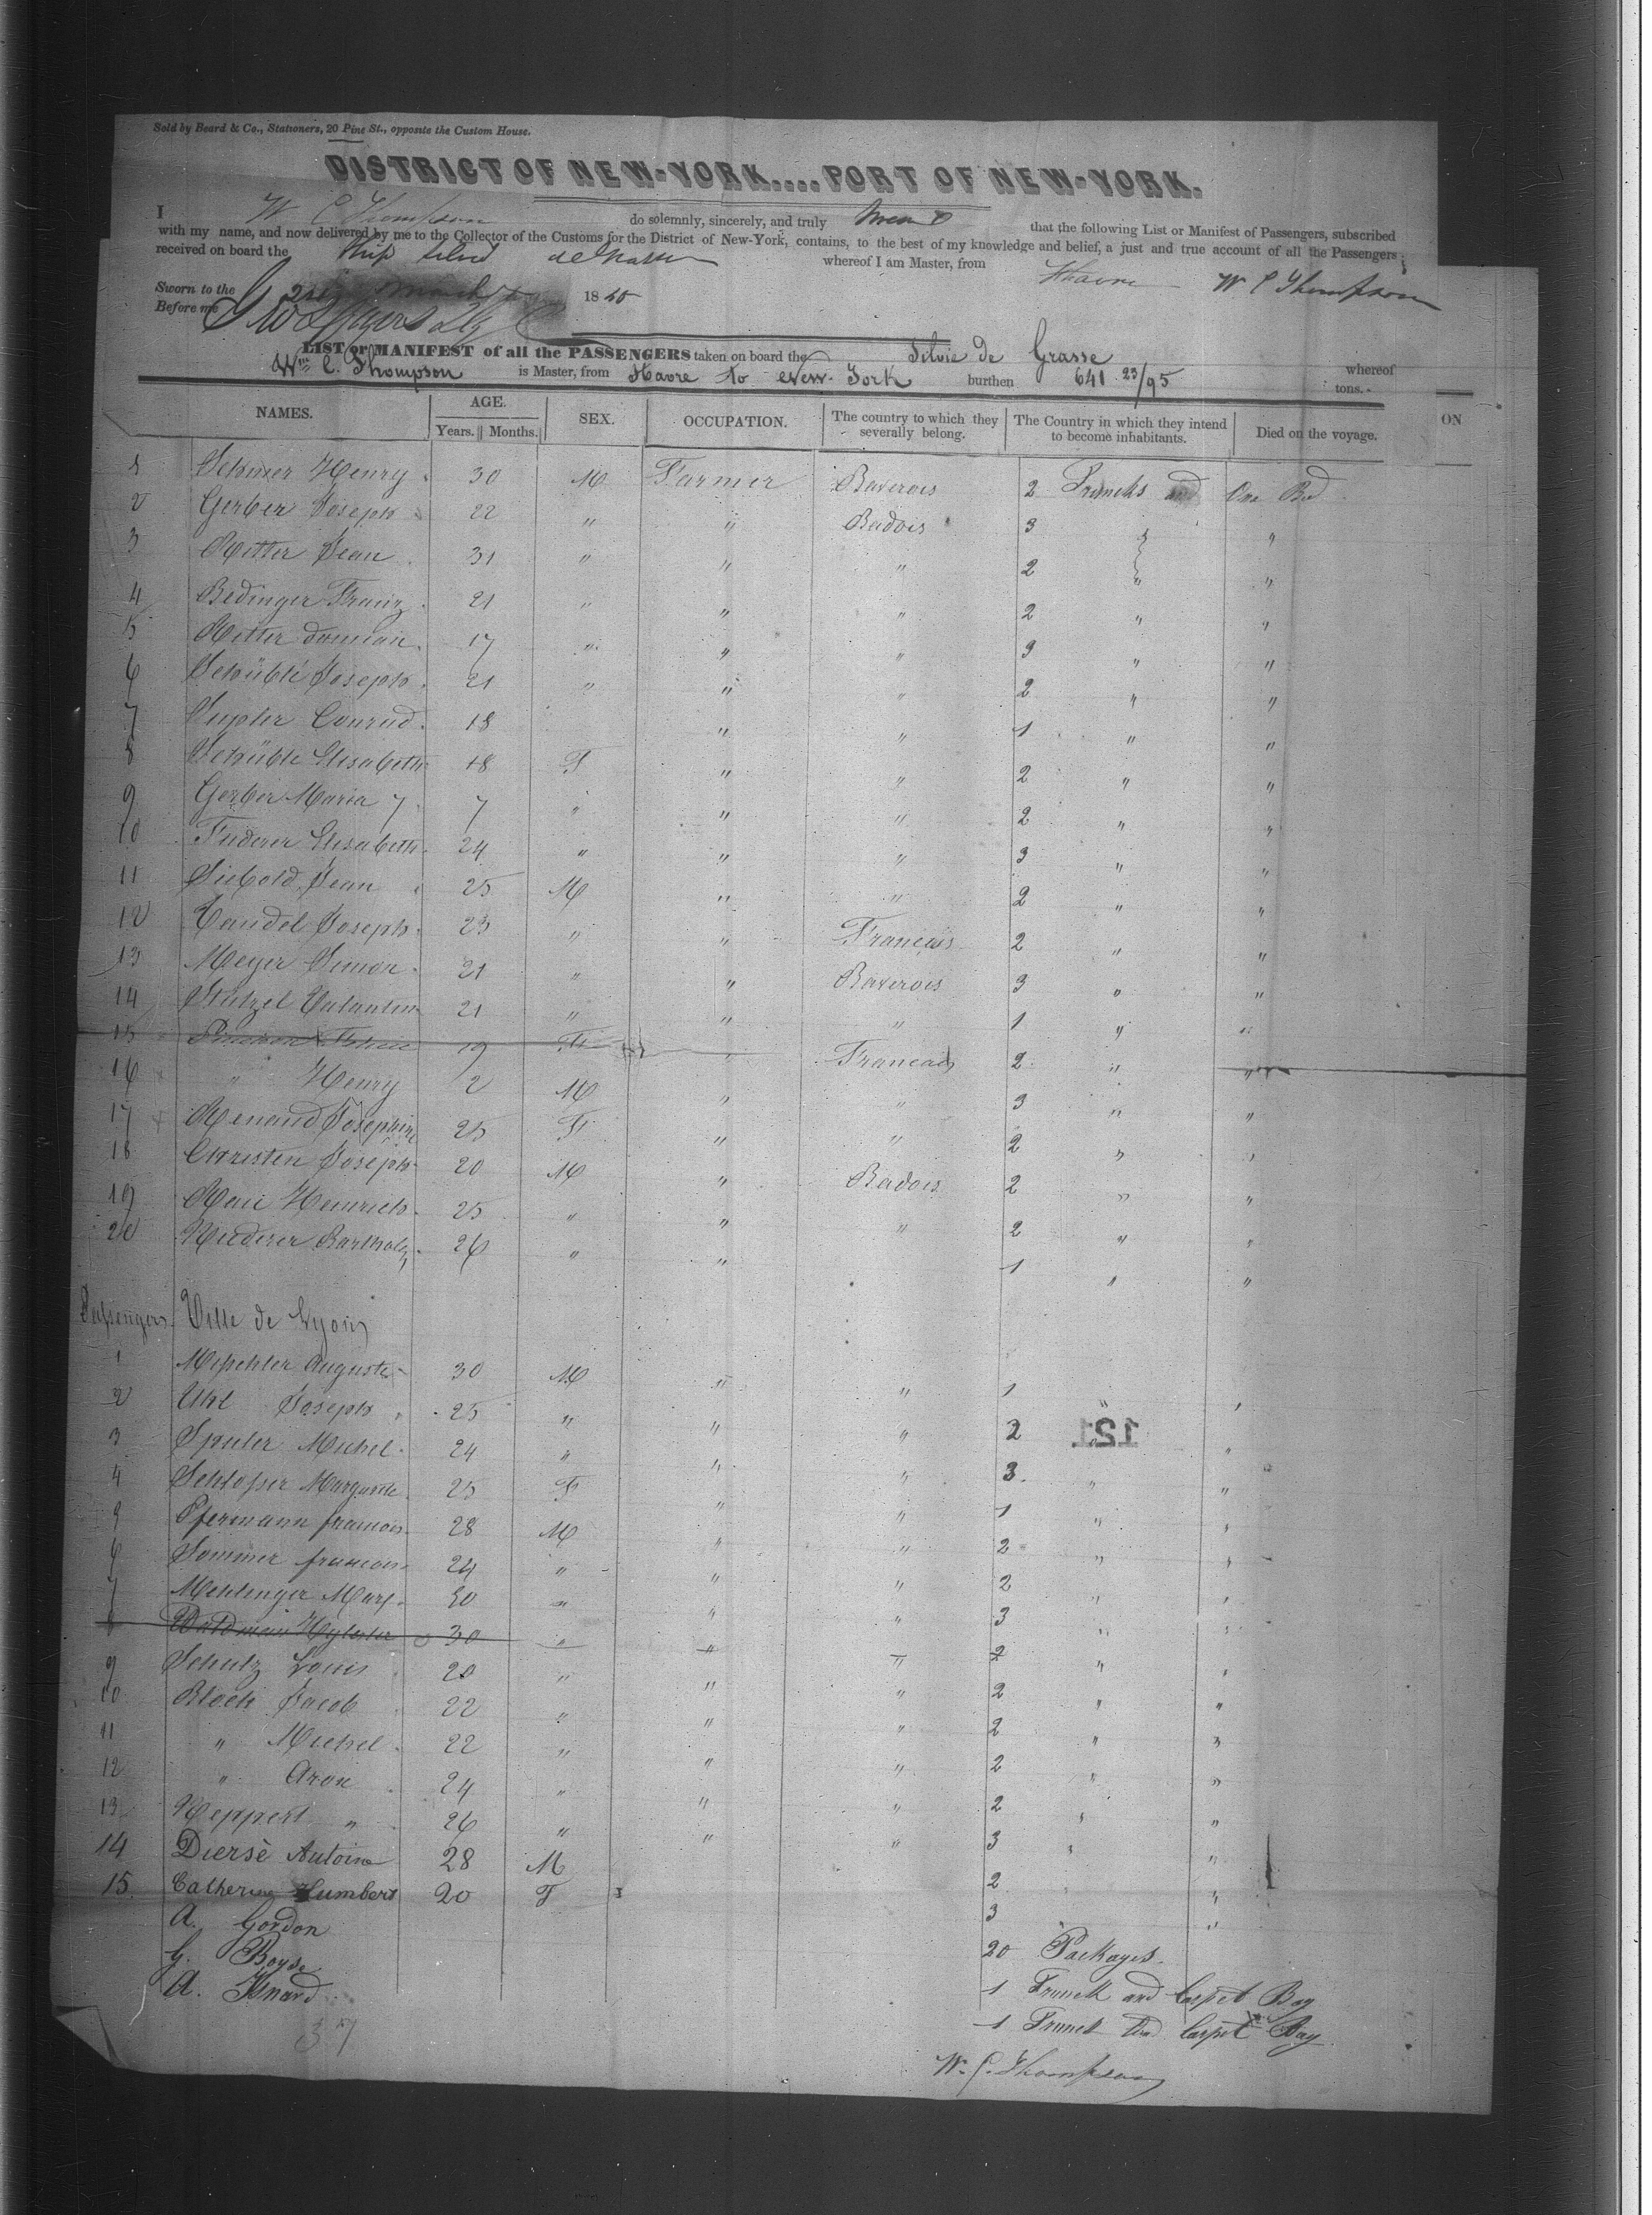 Sold by Beard & Co., Stationers, 20 Pine St., opposite the Custom House.
DISTRICT OF NEW-YORK....PORT OF NEW-YORK.
I W C Thompson do solemnly, sincerely, and truly that the following List or Manifest of Passengers, subscribed
with my name, and now delivered by me to the Collector of the Customs for the District of New-York, contains, to the best of my knowledge and belief, a just and true account of all the Passengers
received on board the Ship whereof I am Master, from Havre W C Thompson
Sworn to the 18
Before me
LIST or MANIFEST of all the PASSENGERS taken on board the Silvie de Grasse whereof
Wm C. Thompson is Master, from Havre to New-York burthen 641 23/95 tons.
NAMES. AGE. Years. Months. SEX. OCCUPATION. The country to which they severally belong. The Country in which they intend to become inhabitants. Died on the voyage. ON
1 Henry 30 M Farmer Baverois 2 Truncks and One Bed
2 Gerber Joseph 22 " " Badois 3 " "
3 Ritter Jean 31 " " " 2 " "
4 Bedinger Franz 21 " " " 2 " "
5 Ritter Domian 17 " " " 3 " "
6 Schüble Joseph 21 " " " 2 " "
7 Conrad 18 " " 1 " "
8 Schüble Elisabeth 18 F " " 2 " "
9 Gerber Maria 7 7 " " " 2 " "
10 Elisabeth 24 " " " 3 " "
11 Siebold Jean 25 M " " 2 " "
12 Caudel Joseph 23 " " Francais 2 " "
13 Meyer Simon 21 " " Baverois 3 " "
14 Stützel Valantin 21 " " " 1 " "
15 19 F " Francais 2 " "
16 " Henry 2 M " " 3 " "
17 Renaud Josephine 25 F " " 2 " "
18 Christen Joseph 20 M " Badois 2 " "
19 Heinrich 25 " " " 2 " "
20 Niederer Barthol 26 " " " 1 " "
Passengers Ville de Lyon
1 Auguste 30 M " " 1 " "
2 Uhl Joseph 25 " " " 2 "
121
3 Michel 24 " " " 3 " "
4 Schlosser Margarite 25 F " " 1 " "
5 Francois 28 M " " 2 " "
6 Sommer francois 24 " " " 2 " "
7 Mehlinger 30 " " " 3 " "
8 30 " " " 2 " "
9 Schulz Louis 20 " " " 2 " "
10 Bloch Jacob 22 " " " 2 " "
11 " Michel 22 " " " 2 " "
12 " Aron 24 " " " 2 " "
13 Neppert " 26 " " " 3 " "
14 Diersè Antoine 28 M 2 "
15 Catherine Humbert 20 F 3 "
A. Gordon 20 Packages.
G. Boyse 1 Trunck and Carpet Bag
A. Isnard 1 Trunck and Carpet Bag
37
W. C. Thompson